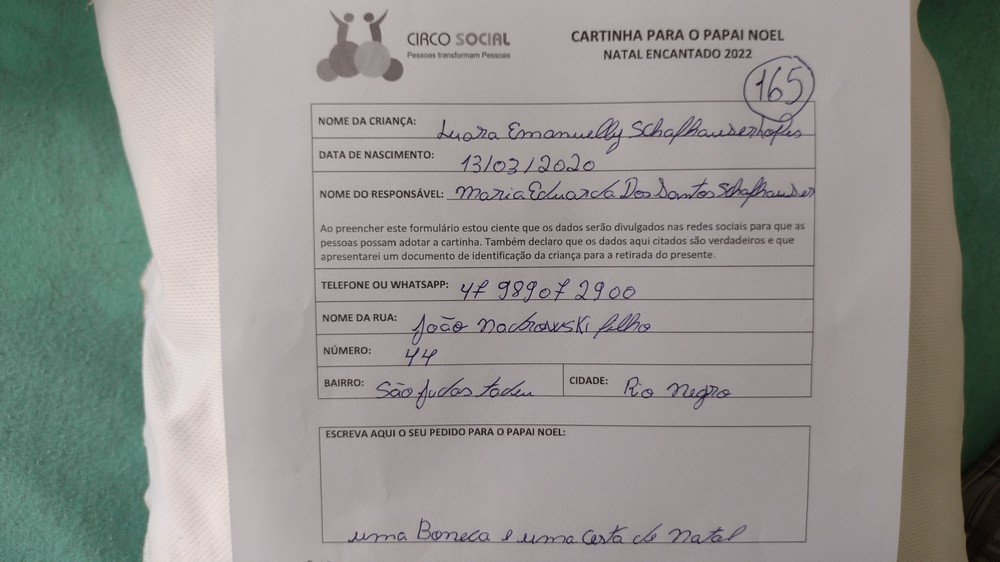 CIRCO SOCIAL
Pessoas transformam Pessoas
CARTINHA PARA O PAPAI NOEL
NATAL ENCANTADO 2022
165
NOME DA CRIANÇA: Luara Emanuelly
DATA DE NASCIMENTO: 13/03/2020
NOME DO RESPONSÁVEL: Maria Eduarda Dos Santos Schafhauser
Ao preencher este formulário estou ciente que os dados serão divulgados nas redes sociais para que as
pessoas possam adotar a cartinha. Também declaro que os dados aqui citados são verdadeiros e que
apresentarei um documento de identificação da criança para a retirada do presente.
TELEFONE OU WHATSAPP: 47 98907 2900
NOME DA RUA: João filho
NÚMERO: 44
BAIRRO: São Judas tadeu CIDADE: Rio Negro
ESCREVA AQUI O SEU PEDIDO PARA O PAPAI NOEL:
uma Boneca e uma cesta de Natal